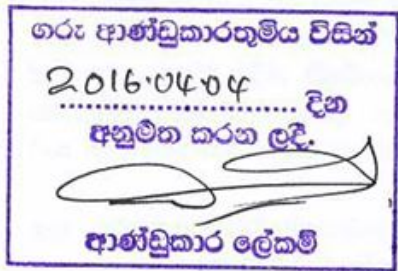 ගරු ආණ්ඩුකාරතුමිය විසින්
2016.04.04 දින
අනුමත කරන ලදී.
ආණ්ඩුකාර ලේකම්